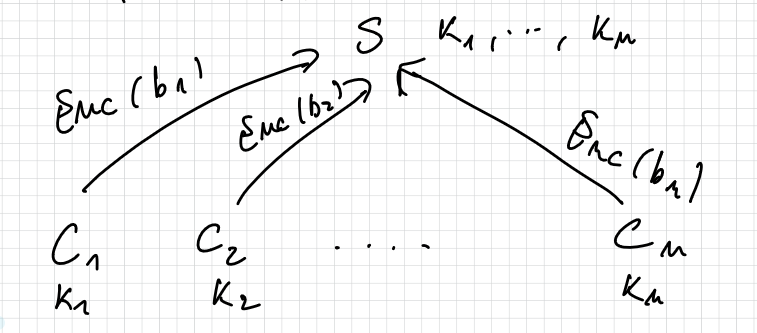 S K₁, ..., Kₙ
Enc(b₁)
Enc(b₂)
Enc(bₙ)
C₁ C₂ .... Cₙ
K₁ K₂ Kₙ